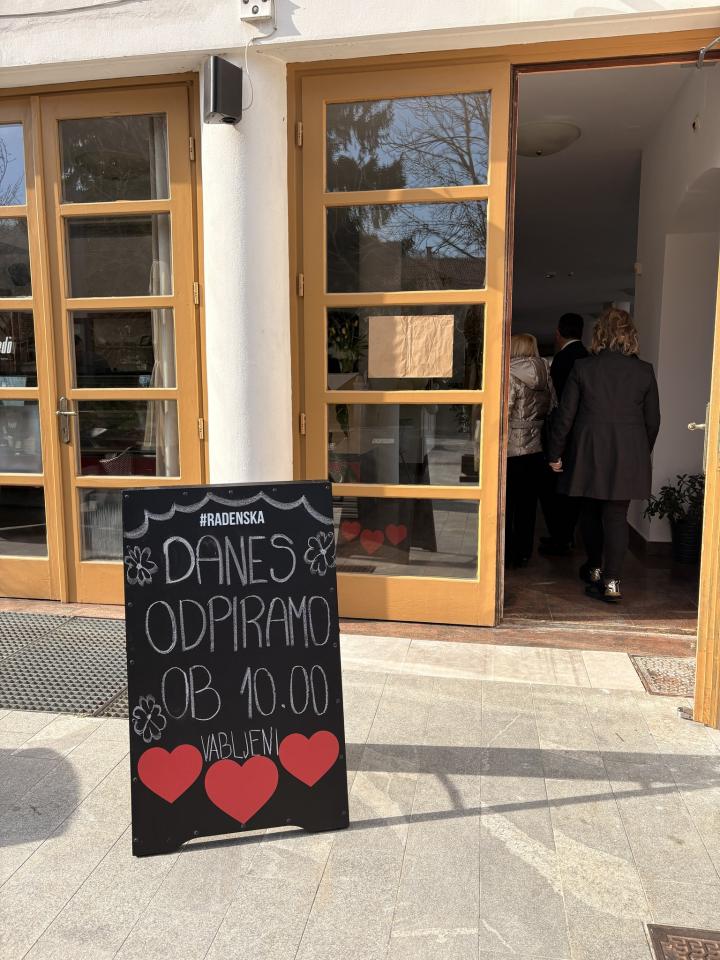 #RADENSKA
DANES
ODPIRAMO
OB 10.00
VABLJENI